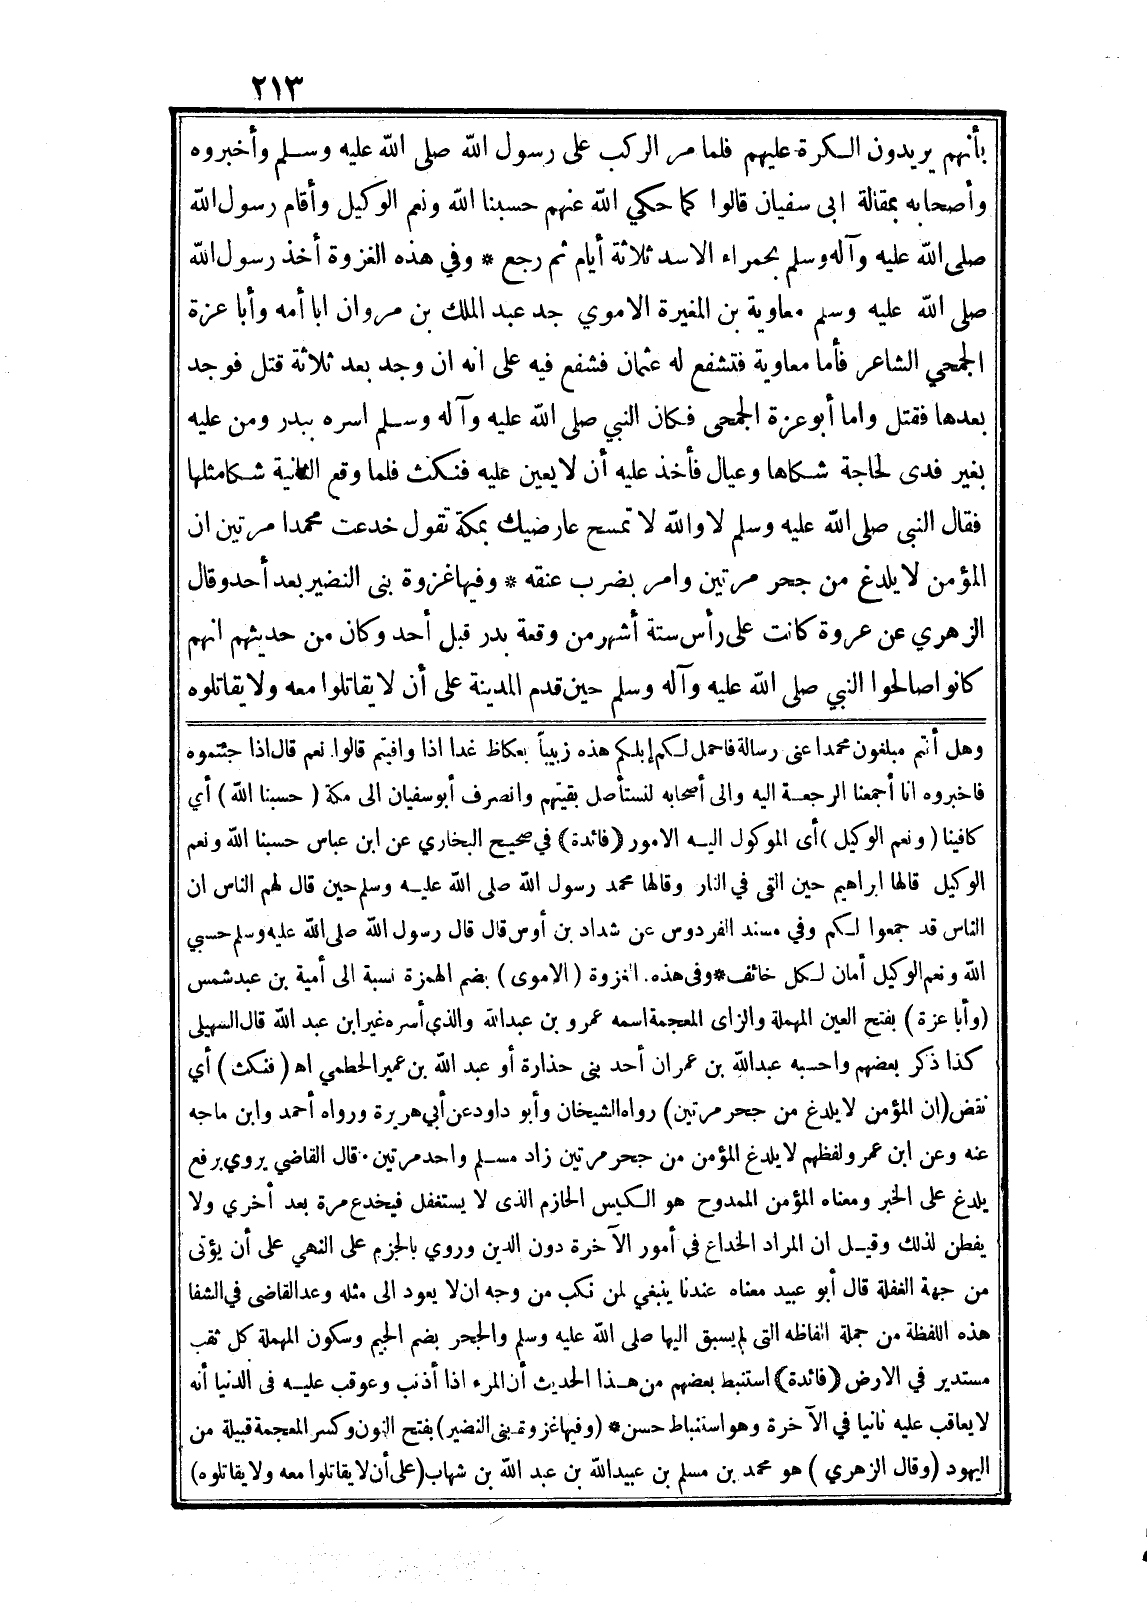 ٢١٣
بأنهم يريدون الكرة عليهم فلما مر الركب على رسول الله صلى الله عليه وسلم وأخبروه
وأصحابه بمقالة ابى سفيان قالوا كما حكي الله عنهم حسبنا الله ونعم الوكيل وأقام رسول الله
صلى الله عليه وآله وسلم بحمراء الاسد ثلاثة أيام ثم رجع * وفي هذه الغزوة أخذ رسول الله
صلى الله عليه وسلم معاوية بن المغيرة الاموي جد عبد الملك بن مروان ابا أمه وأبا عزة
الجمحي الشاعر فأما معاوية فتشفع له عثمان فشفع فيه على انه ان وجد بعد ثلاثة قتل فوجد
بعدها فقتل واما أبو عزة الجمحى فكان النبي صلى الله عليه وآله وسلم اسره ببدر ومن عليه
بغير فدى لحاجة شكاها وعيال فأخذ عليه أن لا يعين عليه فنكث فلما وقع الثانية شكا مثلها
فقال النبى صلى الله عليه وسلم لا والله لا تمسح عارضيك بمكة تقول خدعت محمدا مرتين ان
المؤمن لا يلدغ من جحر مرتين وامر بضرب عنقه * وفيها غزوة بنى النضير بعد أحد وقال
الزهري عن عروة كانت على رأس ستة أشهر من وقعة بدر قبل أحد وكان من حديثهم انهم
كانوا صالحوا النبي صلى الله عليه وآله وسلم حين قدم المدينة على أن لا يقاتلوا معه ولا يقاتلوه
وهل أنتم مبلغون محمدا عنى رسالة فاحمل لكم إبلكم هذه زبيباً بعكاظ غدا اذا وافيتم قالوا نعم قال اذا جئتموه
فاخبروه انا أجمعنا الرجعة اليه والى أصحابه لنستأصل بقيتهم وانصرف أبو سفيان الى مكة ( حسبنا الله ) أي
كافينا ( ونعم الوكيل ) أى الموكول اليه الامور (فائدة) في صحيح البخاري عن ابن عباس حسبنا الله ونعم
الوكيل قالها ابراهيم حين القى في النار وقالها محمد رسول الله صلى الله عليه وسلم حين قال لهم الناس ان
الناس قد جمعوا لكم وفي مسند الفردوس عن شداد بن أوس قال قال رسول الله صلى الله عليه وسلم حسبي
الله ونعم الوكيل أمان لكل خائف * وفى هذه الغزوة ( الاموى ) بضم الهمزة نسبة الى أمية بن عبد شمس
(وأبا عزة ) بفتح العين المهملة والزاى المعجمة اسمه عمرو بن عبدالله والذي أسره غير ابن عبد الله قال السهيلى
كذا ذكر بعضهم واحسبه عبدالله بن عمران أحد بنى حذارة أو عبد الله بن عمير الحطمي اه ( فنكث ) أي
نقض (ان المؤمن لا يلدغ من جحر مرتين) رواه الشيخان وأبو داود عن أبي هريرة ورواه أحمد وابن ماجه
عنه وعن ابن عمر ولفظهم لا يلدغ المؤمن من جحر مرتين زاد مسلم واحد مرتين . قال القاضي يروي برفع
يلدغ على الخبر ومعناه المؤمن الممدوح هو الكيس الحازم الذى لا يستغفل فيخدع مرة بعد أخري ولا
يفطن لذلك وقيل ان المراد الخداع في أمور الآخرة دون الدين وروي بالجزم على النهي على أن يؤتى
من جهة الغفلة قال أبو عبيد معناه عندنا ينبغي لمن نكب من وجه ان لا يعود الى مثله وعد القاضى في الشفا
هذه اللفظة من جملة الفاظه التى لم يسبق اليها صلى الله عليه وسلم والجحر بضم الجيم وسكون المهملة كل ثقب
مستدير في الارض (فائدة) استنبط بعضهم من هذا الحديث أن المرء اذا أذنب وعوقب عليه فى الدنيا أنه
لا يعاقب عليه ثانيا في الآخرة وهو استنباط حسن * (وفيها غزوة بنى النضير) بفتح النون وكسر المعجمة قبيلة من
اليهود (وقال الزهري ) هو محمد بن مسلم بن عبيدالله بن عبد الله بن شهاب (على أن لا يقاتلوا معه ولا يقاتلوه)